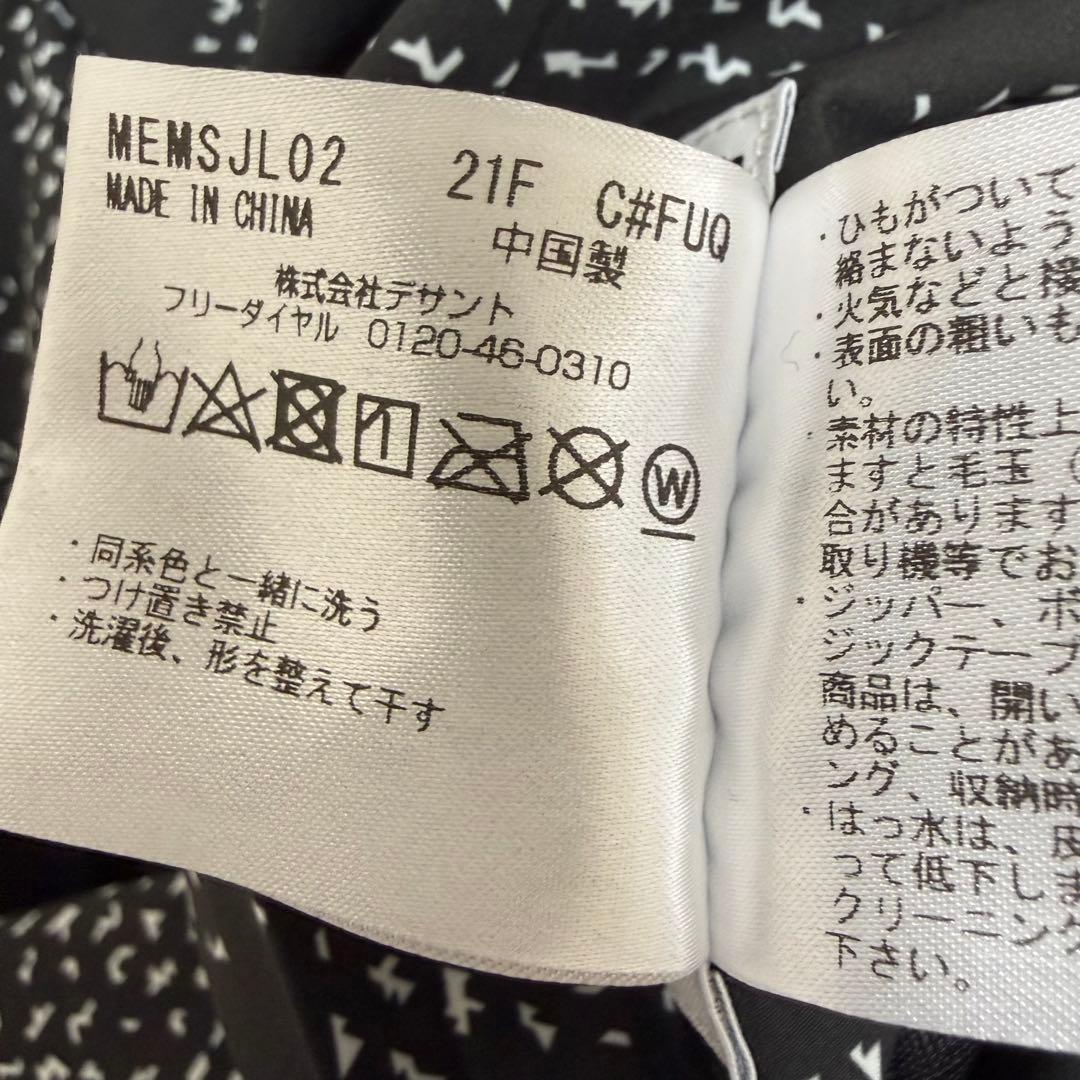 MEMSJL02 21F C#FUQ
MADE IN CHINA 中国製
株式会社デサント
フリーダイヤル 0120-46-0310
W
・同系色と一緒に洗う
・つけ置き禁止
・洗濯後、形を整えて干す
・ひもがついて
絡まないよう
・火気などと接
・表面の粗いも
い。
素材の特性上
ますと毛玉(
合があります
取り機等でお
・ジッパー、ボ
ジックテープ
商品は、開い
めることがあ
ング、収納時
・はっ水は、皮
って低下しま
クリーニング
下さい。